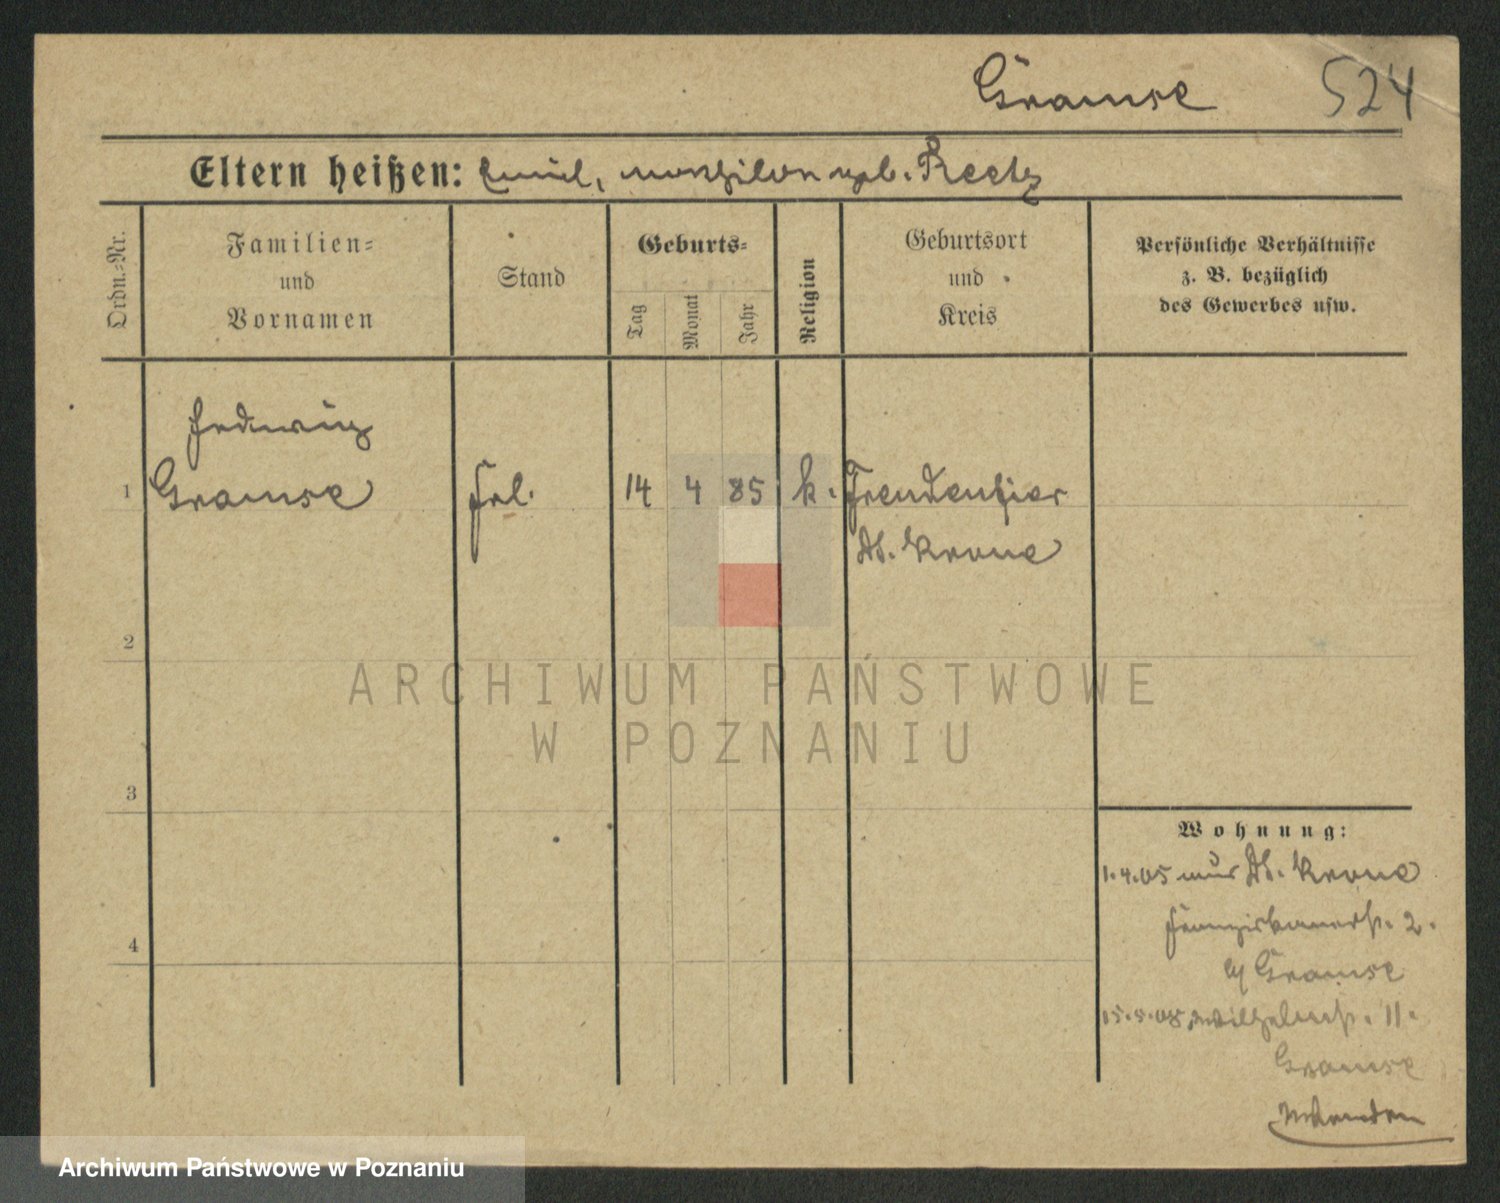 Gramse 524
Eltern heißen: Emil, geb. Reetz
Ordn.=Nr.
Familien=
und
Vornamen
Stand
Geburts=
Tag
Monat
Jahr
Religion
Geburtsort
und
Kreis
Persönliche Verhältnisse
z. B. bezüglich
des Gewerbes usw.
Hedwig
1 Gramse Frl. 14 4 85 k. Freudenfier
Dt. Krone
2
3
4
Wohnung:
1.4.05 aus Dt. Krone
Franziskanerstr. 2.
b/ Gramse
15.5.08 Wilhelmstr. 11.
Gramse
ARCHIWUM PAŃSTWOWE
W POZNANIU
Archiwum Państwowe w Poznaniu